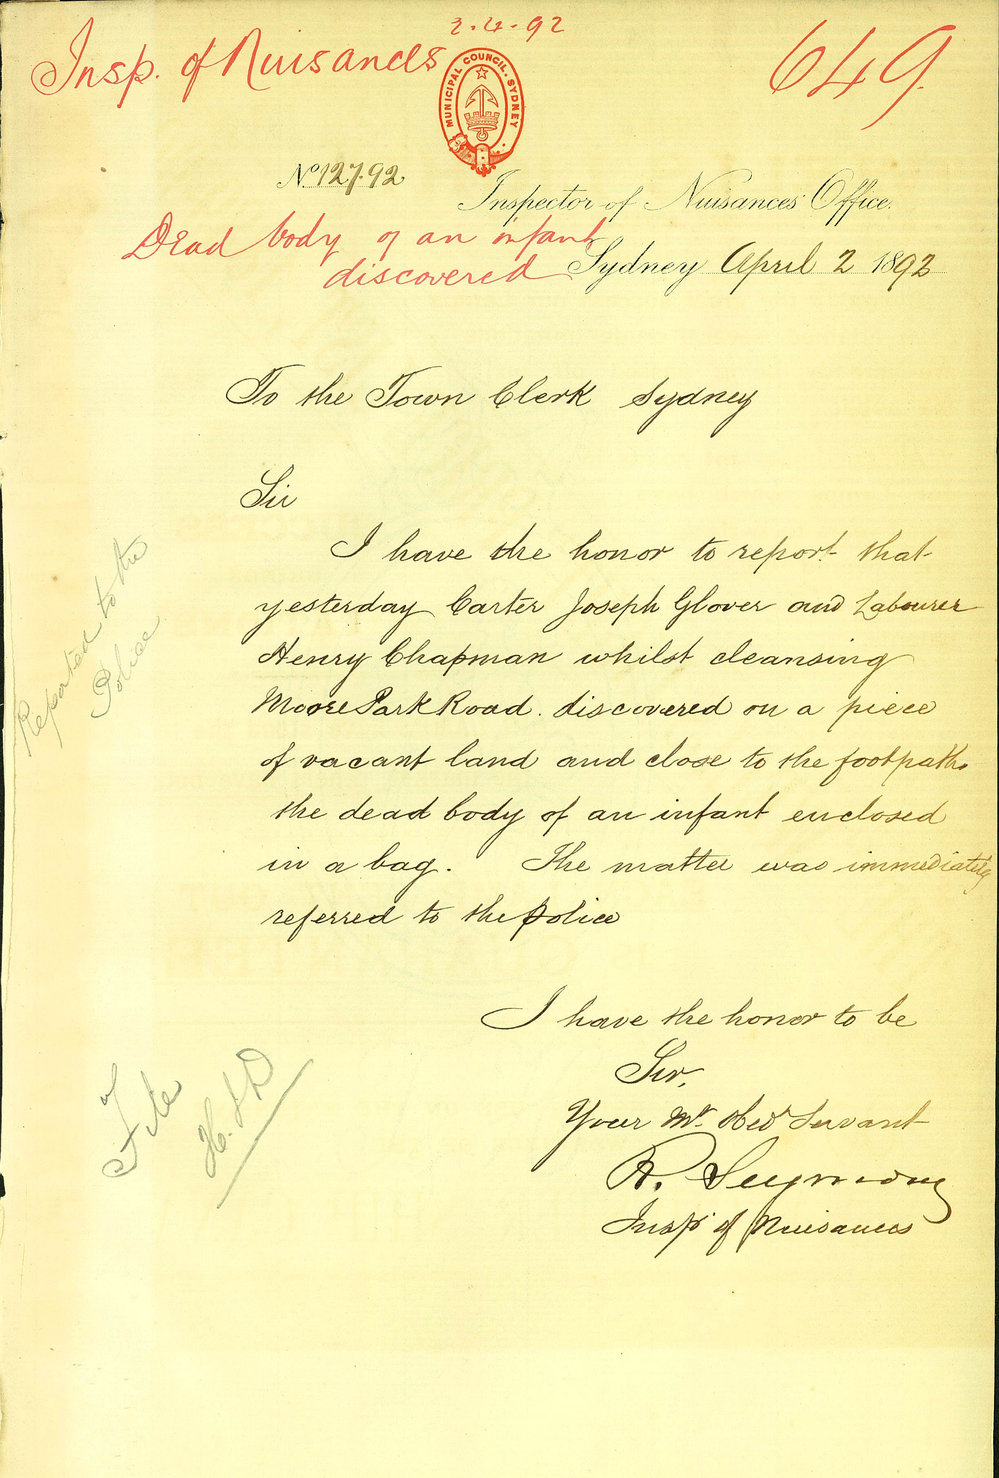 2.4.92
Insp. of Nuisances
649.
MUNICIPAL COUNCIL. SYDNEY
No. 127.92
Inspector of Nuisances Office.
Dead body of an infant
discovered
Sydney April 2 1892
To the Town Clerk Sydney
Sir
I have the honor to report that
yesterday Carter Joseph Glover and Labourer
Henry Chapman whilst cleansing
Moore Park Road. discovered on a piece
of vacant land and close to the footpath.
the dead body of an infant enclosed
in a bag. The matter was immediately
referred to the Police
Reported to the
Police
I have the honor to be
Sir,
Your Mt. Obed Servant
R. Seymour
Insp of Nuisances
File